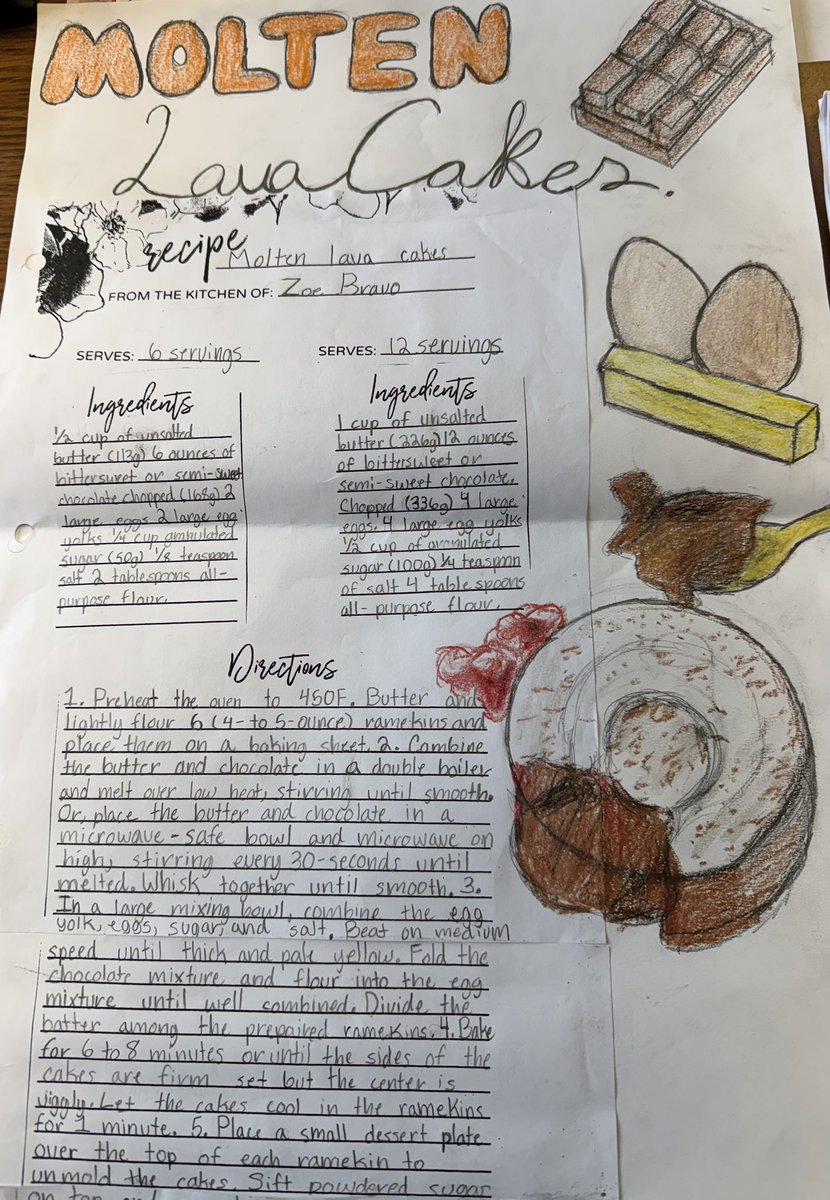 MOLTEN
Lava Cakes.
recipe Molten lava cakes
FROM THE KITCHEN OF: Zoe Bravo
SERVES: 6 servings
Ingredients
1/2 cup of unsalted
butter (113g) 6 ounces of
bittersweet or semi-sweet
chocolate chopped (168g) 2
large eggs 2 large egg
yolks 1/4 cup
sugar (50g) 1/8 teaspoon
salt 2 tablespoons all-
purpose flour.
SERVES: 12 servings
Ingredients
1 cup of unsalted
butter (226g) 12 ounces
of bittersweet or
semi-sweet chocolate.
Chopped (336g) 4 large
eggs. 4 large egg yolks
1/2 cup of
sugar (100g) 1/4 teaspoon
of salt 4 table spoons
all-purpose flour.
Directions
1. Preheat the oven to 450F. Butter and
lightly flour 6 (4- to 5-ounce) ramekins and
place them on a baking sheet. 2. Combine
the butter and chocolate in a double boiler
and melt over low heat, stirring until smooth.
Or, place the butter and chocolate in a
microwave-safe bowl and microwave on
high, stirring every 30-seconds until
melted. Whisk together until smooth. 3.
In a large mixing bowl, combine the egg
yolk, eggs, sugar, and salt. Beat on medium
speed until thick and pale yellow. Fold the
chocolate mixture and flour into the egg
mixture until well combined. Divide the
batter among the prepaired ramekins. 4. Bake
for 6 to 8 minutes or until the sides of the
cakes are firm set but the center is
Let the cakes cool in the ramekins
for 1 minute. 5. Place a small dessert plate
over the top of each ramekin to
unmold the cakes. Sift powdered sugar
on top